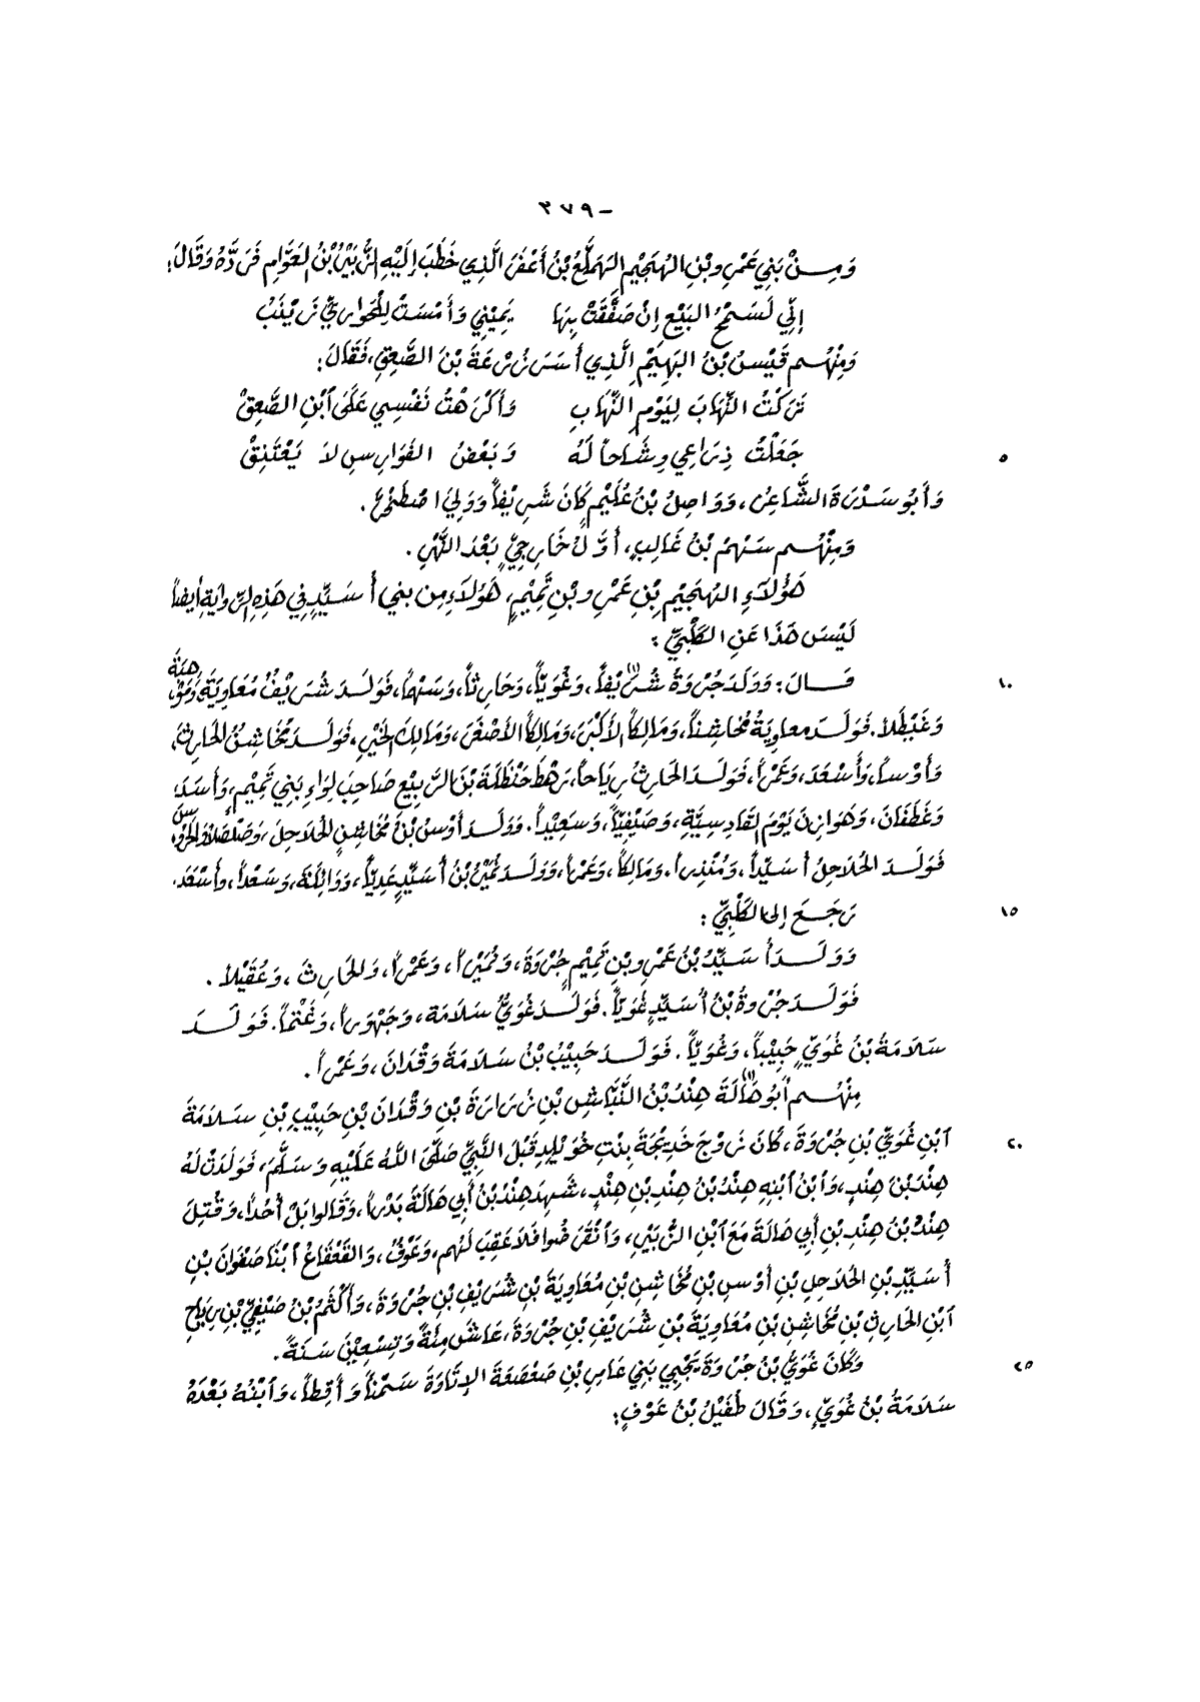 -٣٧٩
وَمِنْ بَنِي عَمْرِو بْنِ الهُجَيْمِ الهَمَلَّعُ بْنُ أَعْفَرَ الَّذِي خَطَبَ إِلَيْهِ الزُّبَيْرُ بْنُ العَوَّامِ فَرَدَّهُ وَقَالَ:
إِنِّي لَسَمْحُ البَيْعِ إِنْ صَفَّقَتْ بِهَا يَمِيْنِي وَأَمْسَتْ لِلْحَوَارِيِّ زَيْنَبُ
وَمِنْهُم قَيْسُ بْنُ الهُجَيْمِ الَّذِي أَسَرَ زُرْعَةَ بْنَ الصَّعِقِ، فَقَالَ:
تَرَكْتُ النِّهَابَ لِيَوْمِ النِّهَابِ وَأَكْرَهْتُ نَفْسِي عَلَى ابْنِ الصَّعِقْ
٥ جَعَلْتُ ذِرَاعِي وِشَاحاً لَهُ وَبَعْضُ الفَوَارِسِ لاَ يَعْتَنِقْ
وَأَبُو سَدْرَةَ الشَّاعِرُ، وَوَاصِلُ بْنُ عُلَيْمٍ كَانَ شَرِيْفاً وَوَلِيَ اصْطَخْرَ.
وَمِنْهُم سَهْمُ بْنُ غَالِبٍ، أَوَّلُ خَارِجِيٍّ بَعْدَ النَّهْرِ.
هَؤُلَاءِ الهُجَيْمُ بْنِ عَمْرِو بْنِ تَمِيْمٍ، هَؤُلَاءِ مِن بني أُسَيِّدٍ فِي هَذِهِ الرِّوايَةِ أيضاً
لَيْسَ هَذَا عَنِ الكَلْبِيِّ:
١٠ قَالَ: وَوَلَدَ جُرْوَةُ شُرَيْفاً، وَغُوَيّاً، وَحَارِثاً، وَسَهْماً، فَوَلَدَ شُرَيْفُ مُعَاوِيَةَ، وَمُرَّةَ،
وَغَيْظَلاً. فَوَلَدَ معاوِيَةُ مُخَاشِناً، وَمَالِكاً الأَكْبَرَ، وَمَالِكاً الأَصْغَرَ، وَمَالِكَ الخَيْرِ، فَوَلَدَ مُخَاشِنُ الحَارِثَ،
وَأَوْساً، وَأَسْعَدَ، وَعَمْراً، فَوَلَدَ الحَارِثُ رِيَاحاً، رَهْطَ حَنْظَلَةَ بْنِ الرَّبِيْعِ صَاحِبِ لِوَاءِ بَنِي تَمِيْمٍ، وَأَسَدَ،
وَغَطَفَانَ، وَهَوَازِنَ يَوْمَ القَادِسِيَّةِ، وَصَيْفِيّاً، وَسَعِيْداً. وَوَلَدَ أَوْسُ بْنُ مُخَاشِنٍ الحُلَاحِلَ، وَصَلْصَلاً،
فَوَلَدَ الحُلَاحِلُ أُسَيِّداً، وَمُنْذِراً، وَمَالِكاً، وَعَمْراً، وَوَلَدَ نُمَيْرُ بْنُ أُسَيِّدٍ عَدِيّاً، وَوَاثِلَةَ، وَسَعْداً، وأَسْعَدَ.
١٥ رَجَعَ إلى الكَلْبِيِّ:
وَوَلَدَ أُسَيِّدُ بْنُ عَمْرِو بْنِ تَمِيْمٍ جُرْوَةَ، وَنُمَيْراً، وَعَمْراً، وَالحَارِثَ، وَعُقَيْلاً.
فَوَلَدَ جُرْوَةُ بْنُ أُسَيِّدٍ غُوَيّاً. فَوَلَدَ غُوَيُّ سَلَامَةَ، وَجَهْوَراً، وَغَنْماً. فَوَلَدَ
سَلَامَةُ بْنُ غُوَيٍّ حَبِيْباً، وَغُوَيّاً. فَوَلَدَ حَبِيْبُ بْنُ سَلَامَةَ وَقْدَانَ، وَعَمْراً.
مِنْهُم أَبُو هَالَةَ هِنْدُ بْنُ النَّبَّاشِ بْنِ زُرَارَةَ بْنِ وَقْدَانَ بْنِ حَبِيْبِ بْنِ سَلَامَةَ
٢٠ ابْنِ غُوَيِّ بْنِ جُرْوَةَ، كَانَ زَوْجَ خَدِيْجَةَ بِنْتِ خُوَيْلِدٍ قَبْلَ النَّبِيِّ صَلَّى اللهُ عَلَيْهِ وَسَلَّمَ، فَوَلَدَتْ لَهُ
هِنْدَ بْنَ هِنْدٍ، وَابْنُ ابْنِهِ هِنْدُ بْنُ هِنْدِ بْنِ هِنْدٍ، شَهِدَ هِنْدُ بْنُ أَبِي هَالَةَ بَدْراً، وَقَالُوا بَلْ أُحُداً، وَقُتِلَ
هِنْدُ بْنُ هِنْدِ بْنِ أَبِي هَالَةَ مَعَ ابْنِ الزُّبَيْرِ، وَانْقَرَضُوا فَلَا عَقِبَ لَهُم، وَعَوْفُ، وَالقَعْقَاعُ ابْنَا صَفْوَانَ بْنِ
أُسَيِّدِ بْنِ الحُلَاحِلِ بْنِ أَوْسِ بْنِ مُخَاشِنِ بْنِ مُعَاوِيَةَ بْنِ شُرَيْفِ بْنِ جُرْوَةَ، وَأَكْثَمُ بْنُ صَيْفِيِّ بْنِ رِيَاحِ
ابْنِ الحَارِثِ بْنِ مُخَاشِنِ بْنِ مُعَاوِيَةَ بْنِ شُرَيْفِ بْنِ جُرْوَةَ، عَاشَ مِئَةً وَتِسْعِيْنَ سَنَةً.
٢٥ وَكَانَ غُوَيُّ بْنُ جُرْوَةَ يَجْبِي بَنِي عَامِرِ بْنِ صَعْصَعَةَ الإِتَاوَةَ سَمْناً وَأَقِطاً، وَابْنُهُ بَعْدَهُ
سَلَامَةُ بْنُ غُوَيٍّ، وَقَالَ طُفَيْلُ بْنُ عَوْفٍ: